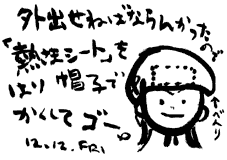 外出せねばならんかったので
「熱性シート」を
はり 帽子で
かくして ゴー。
12.12. FRI
←べんり